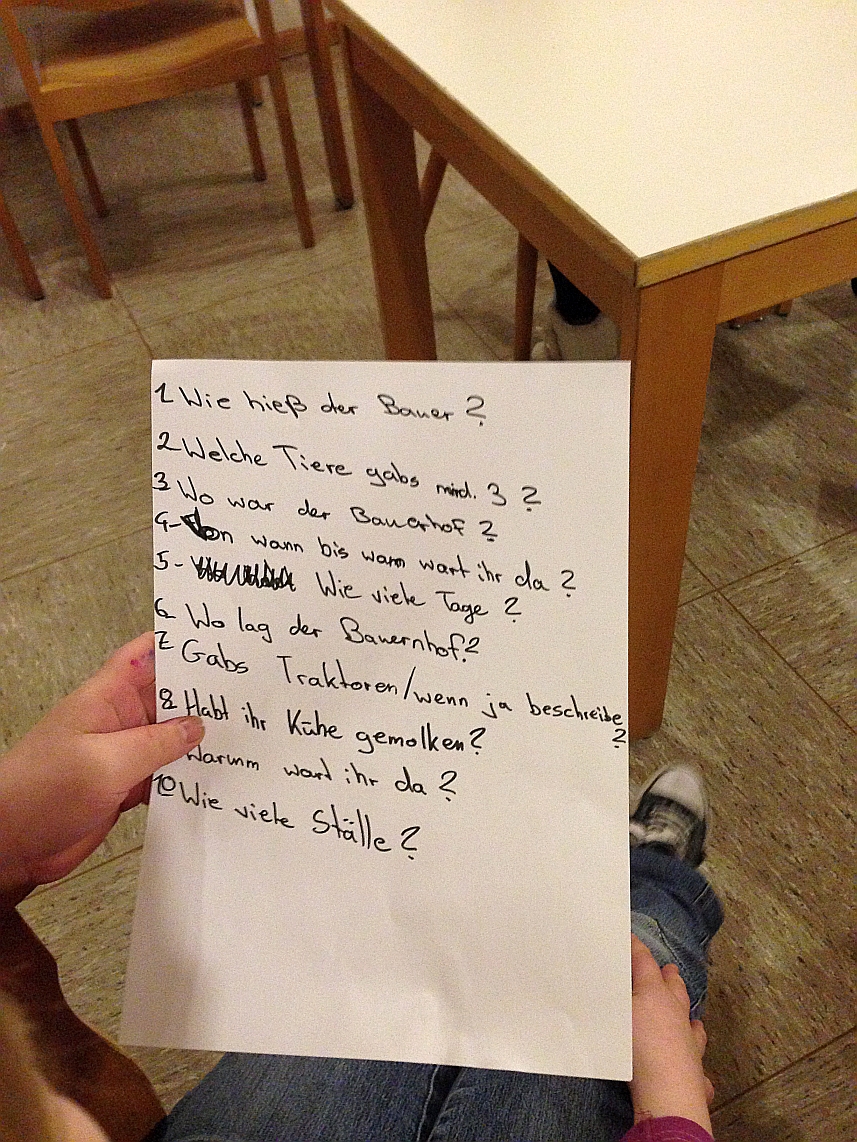 1 Wie hieß der Bauer?
2 Welche Tiere gabs mind. 3?
3 Wo war der Bauerhof?
4- Von wann bis wann wart ihr da?
5- Wie viele Tage?
6 Wo lag der Bauernhof?
7 Gabs Traktoren/wenn ja beschreibe
?
8 Habt ihr Kühe gemolken?
Warum wart ihr da?
10 Wie viele Ställe?